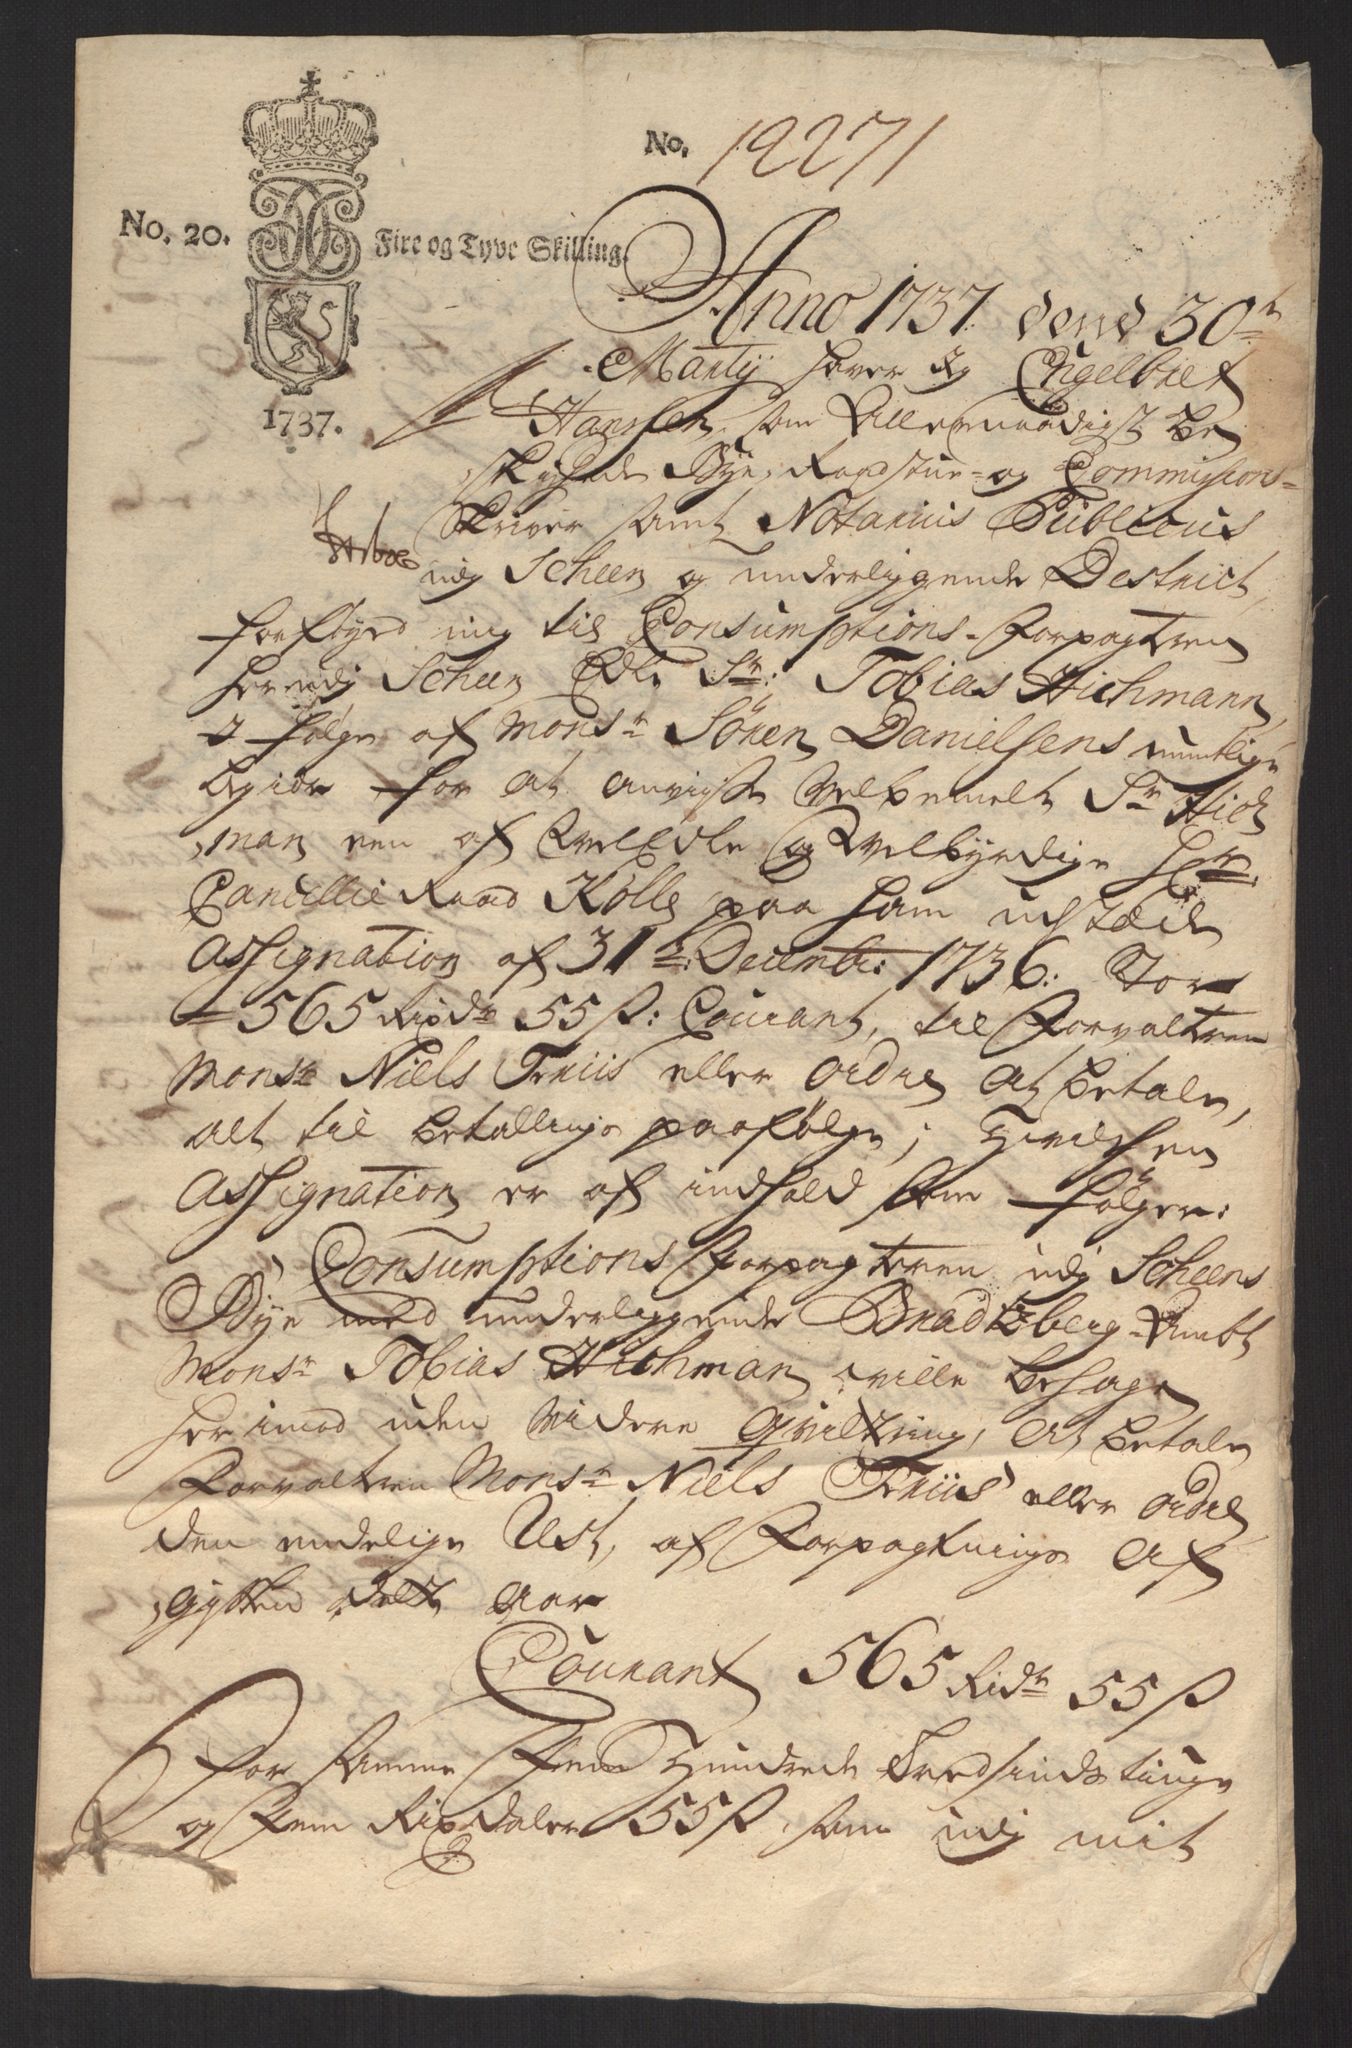 No. 12271
No. 20.
Fire og Tyve Skilling.
1737.
Anno 1737 dend 30te
Martij haver Jeg Engelbret
Hanssen, som Allernaadigst be
skichede Bye, Raadstue- og Commissions-
Skriver samt Notarius Publicus
udj Scheen og underliggende District,
forføyed mig til Consumptions-Forpagteren
her udj Scheen Edle Sr: Tobias Hichmann,
I følge af Monsr Sören Danielsens mundtlige
begier for at anviise velbemelte Sr Hich
man een af Vel Edle og Velbyrdige Hr:
Cancellie Raad Kolle paa ham udstæde
Assignation af 31te: Decembr: 1736. Stor
565 Rixdr 55 ß: Courant, til Forvalteren
Monsr Niels Friis eller Ordre at betale,
alt til betallings paafølge; Hvilchen
Assignation er af indhold som følger:
Consumptions Forpagteren udj Scheens
Bye med underliggende Bradtzberg-Ambt
Monsr Tobias Hichman ville behage
herimod uden videre Qvittering, at betale
Forvalteren Monsr Niels Friis eller Ordre
den endelige Rest, af Forpagtnings Af
gifften dette Aar
Courant 565 Rixdr 55 ß
For samme Fem Hundrede Tredsindstiuge
og Fem Rixdaler 55 ß, som udj mit